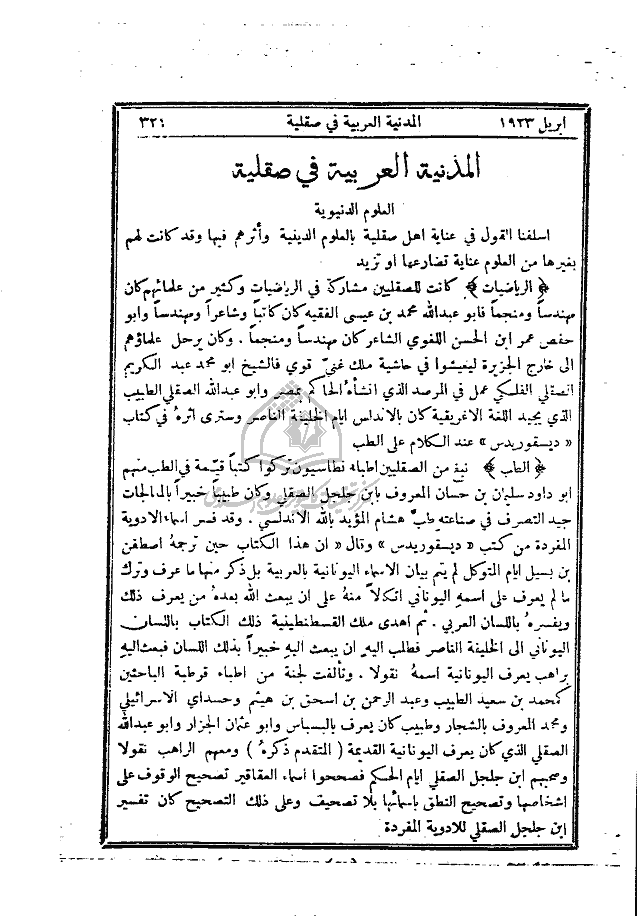 ابريل ١٩٢٣ المدنية العربية في صقلية ٣٢١
المدنية العربية في صقلية
العلوم الدنيوية
اسلفنا القول في عناية اهل صقلية بالعلوم الدينية وأثرهم فيها وقد كانت لهم
بغيرها من العلوم عناية تضارعها او تزيد
﴿ الرياضيات ﴾ كانت للصقليين مشاركة في الرياضيات وكثير من علمائهم كان
مهندساً ومنجماً فابو عبدالله محمد بن عيسى الفقيه كان كاتباً وشاعراً ومهندساً وابو
حفص عمر ابن الحسن اللغوي الشاعر كان مهندساً ومنجماً . وكان يرحل علماؤهم
الى خارج الجزيرة ليعيشوا في حاشية ملك غني قوي فالشيخ ابو محمد عبد الكريم
الصقلي الفلكي عمل في المرصد الذي انشأهُ الحاكم بمصر وابو عبدالله الصقلي الطبيب
الذي يجيد اللغة الاغريقية كان بالاندلس ايام الخليفة الناصر وسترى اثرهُ في كتاب
« ديسقوريدس » عند الكلام على الطب
﴿ الطب ﴾ نبغ من الصقليين اطباء نطاسيون تركوا كتباً قيّمة في الطب منهم
ابو داود سليمان بن حسان المعروف بابن جلجل الصقلي وكان طبيباً خبيراً بالمعالجات
جيد التصرف في صناعته طبّ هشام المؤيد بالله الاندلسي . وقد فسر اسماء الادوية
المفردة من كتب « ديسقوريدس » وقال « ان هذا الكتاب حين ترجمهُ اصطفن
بن بسيل ايام المتوكل لم يتم بيان الاسماء اليونانية بالعربية بل ذكر منها ما عرف وترك
ما لم يعرف على اسمهِ اليوناني اتكالاً منهُ على ان يبعث الله بعدهُ من يعرف ذلك
ويفسرهُ باللسان العربي . ثم اهدى ملك القسطنطينية ذلك الكتاب باللسان
اليوناني الى الخليفة الناصر فطلب اليهِ ان يبعث اليهِ خبيراً بذلك اللسان فبعث اليهِ
براهب يعرف اليونانية اسمهُ نقولا . وتألفت لجنة من اطباء قرطبة الباحثين
كمحمد بن سعيد الطبيب وعبد الرحمن بن اسحق بن هيثم وحسداي الاسرائيلي
ومحمد المعروف بالشجار وطبيب كان يعرف بالبسباس وابو عثمان الجزار وابو عبدالله
الصقلي الذي كان يعرف اليونانية القديمة ( المتقدم ذكرهُ ) ومعهم الراهب نقولا
وصحبهم ابن جلجل الصقلي ايام الحكم فصححوا اسماء العقاقير تصحيح الوقوف على
اشخاصها وتصحيح النطق باسمائها بلا تصحيف وعلى ذلك التصحيح كان تفسير
ابن جلجل الصقلي للادوية المفردة